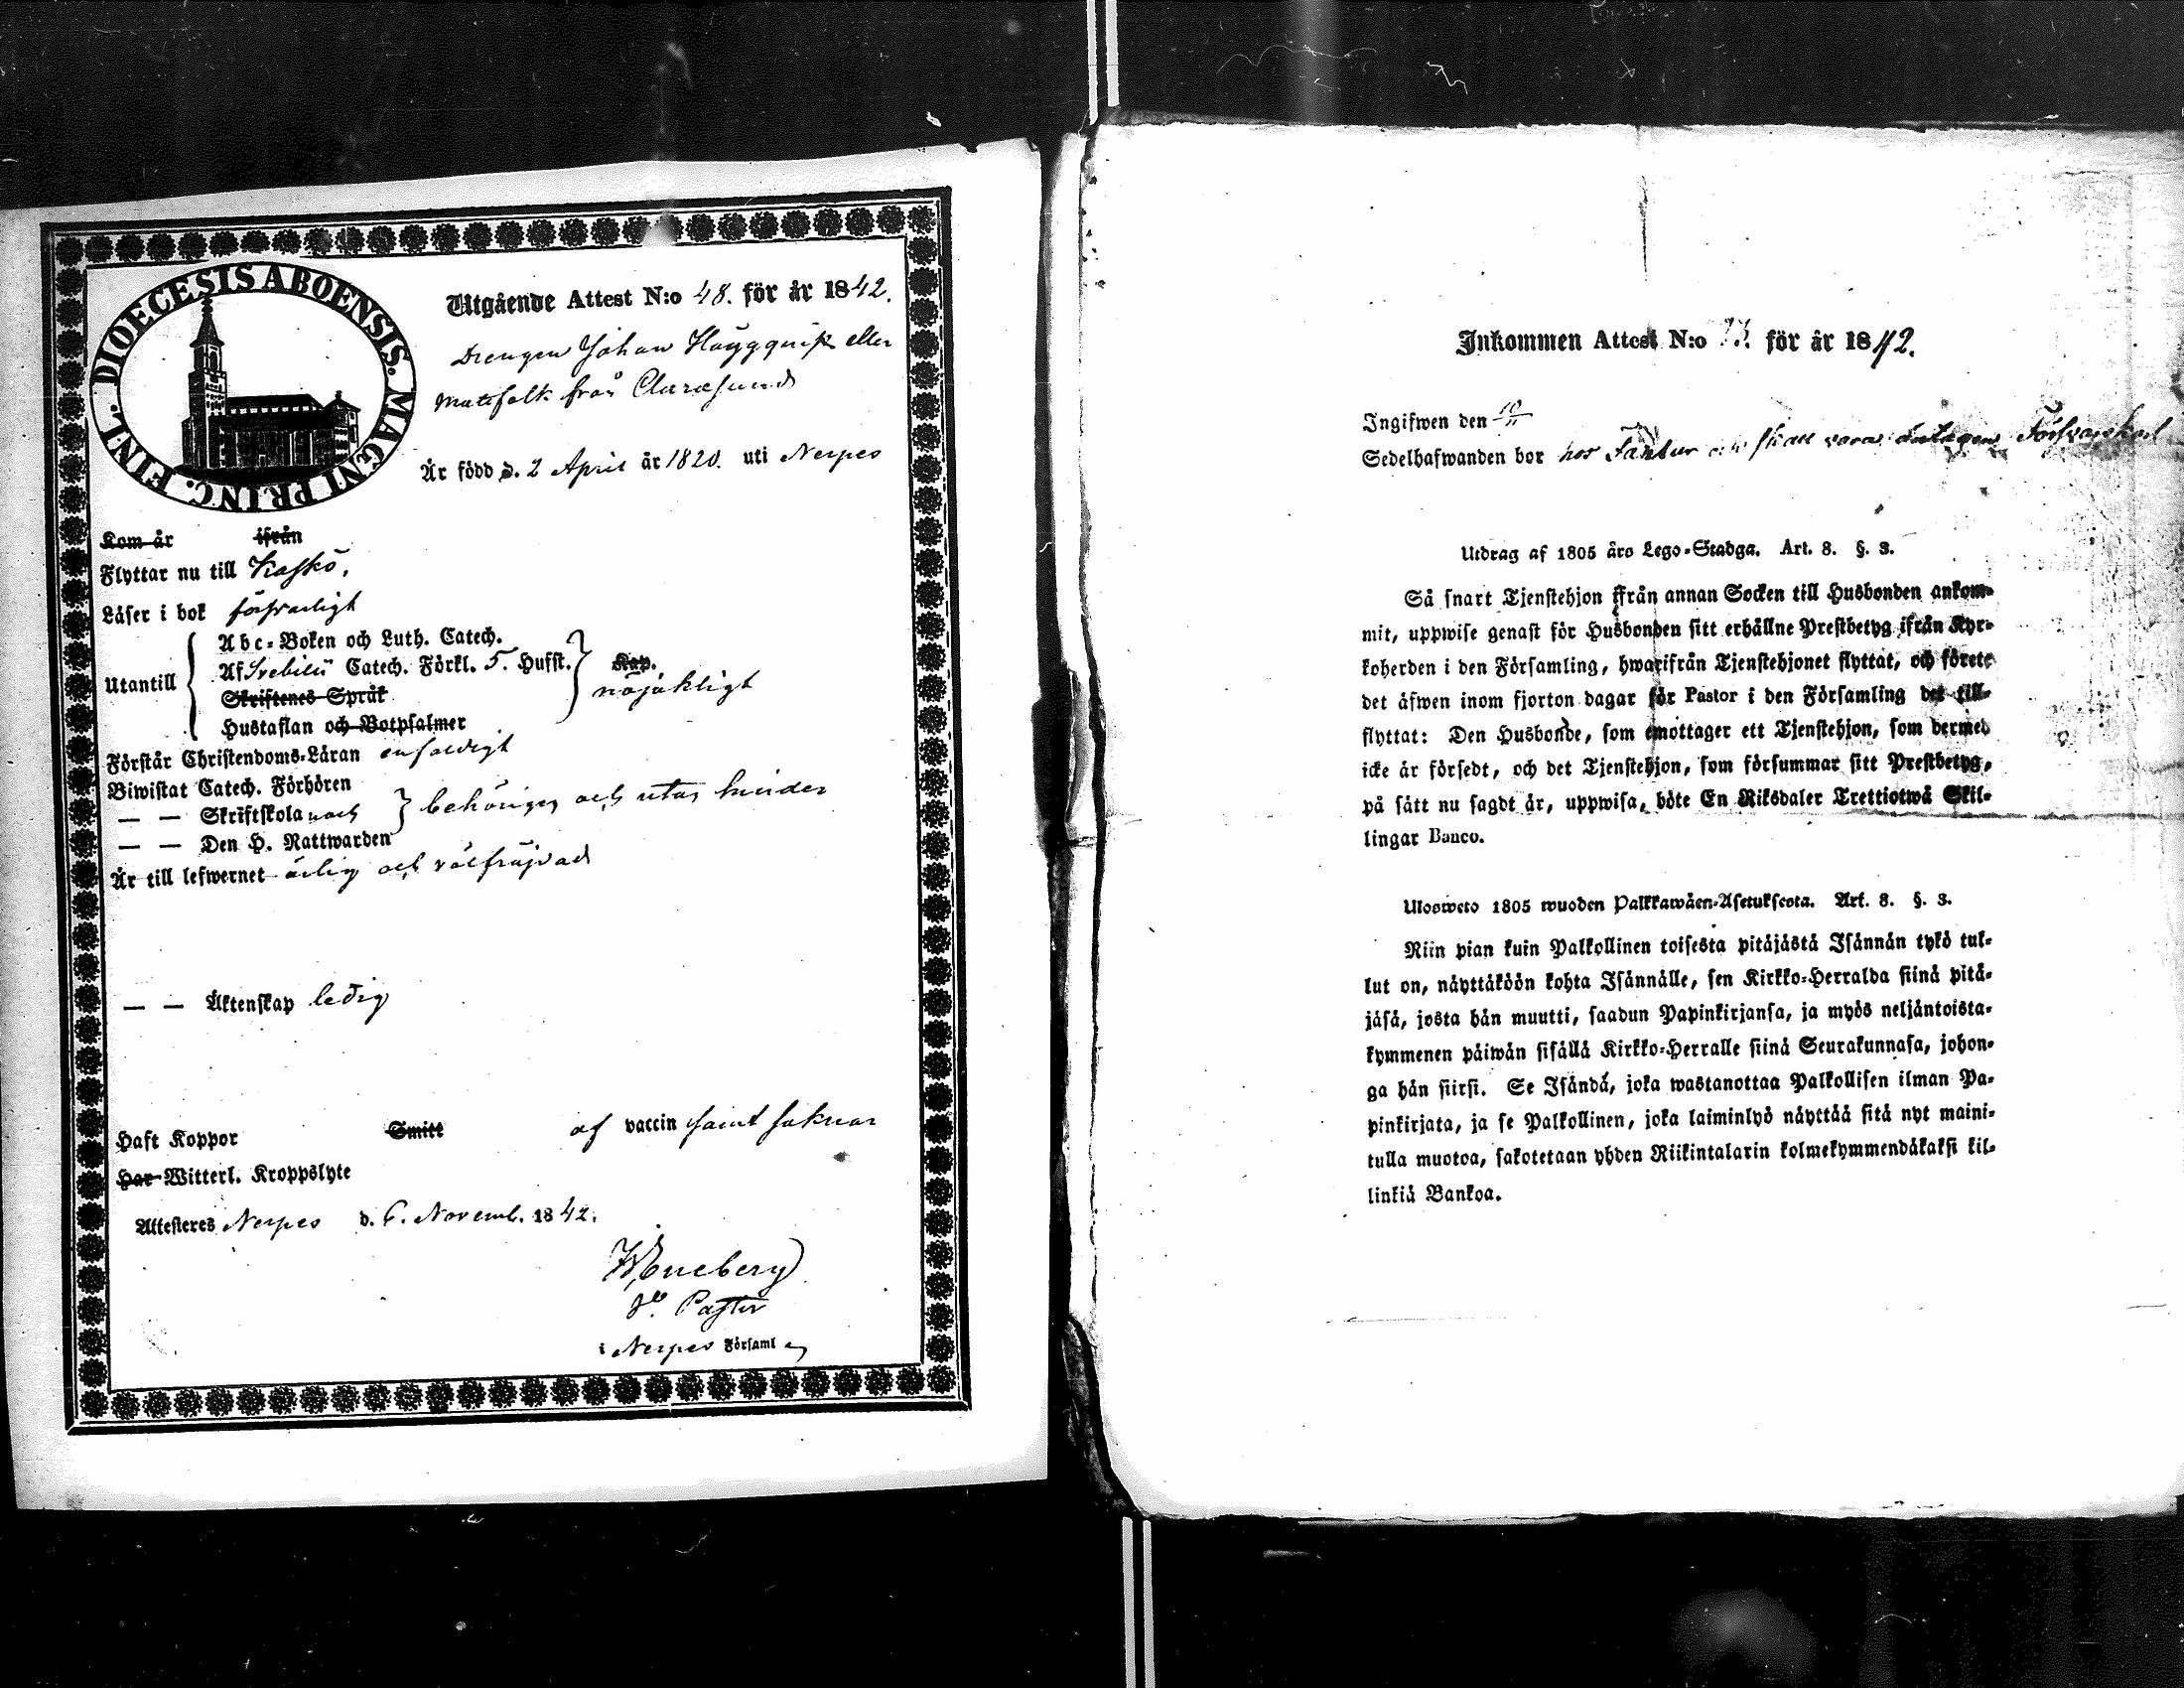 DIOECESIS ABOENSIS. MAGNI PRINC. FINL.
Utgående Attest N:o 48. för år 1842.
Drengen Johan Häggqvist eller
Matsfolk från
Är född d. 2 April år 1820. uti Nerpes
Kom år ifrån
Flyttar nu till Kaskö,
Läser i bok försvarligt
Utantill
Abc-Boken och Luth. Catech.
Af Svebilii Catech. Förkl. 5. Hufst. Kap.
Skriftenes Språk nöjakligt
Hustaflan och Botpsalmer
Förstår Christendoms-Läran enfaldigt
Biwistat Catech. Förhören
— — Skriftskola och behörigen och utan hinder
— — Den H. Nattwarden
Är till lefwernet ärlig och välfräjdad
— — Äktenskap ledig
Haft Koppor Smitt af vaccin samt saknar
Har Witterl. Kroppslyte
Attesteres Nerpes d. 6. Novemb. 1842.
Pastor
i Nerpes Församl
Inkommen Attest N:o 73. för år 1842.
Ingifwen den 10/11
Sedelhafwanden bor hos skall vara antagen
Utdrag af 1805 års Lego-Stadga. Art. 8. §. 3.
Så snart Tjenstehjon ifrån annan Socken till Husbonden ankom-
mit, uppwise genast för Husbonden sitt erhållne Prestbetyg ifrån Kyr-
koherden i den Församling, hwarifrån Tjenstehjonet flyttat, och förete
det äfwen inom fjorton dagar för Pastor i den Församling det till-
flyttat: Den Husbonde, som emottager ett Tjenstehjon, som dermed
icke är försedt, och det Tjenstehjon, som försummar sitt Prestbetyg,
på sätt nu sagdt är, uppwisa, böte En Riksdaler Trettiotwå Skil-
lingar Banco.
Ulosweto 1805 wuoden Palkkawäen-Asetuksesta. Art. 8. §. 3.
Niin pian kuin Palkollinen toisesta pitäjästä Isännän tykö tul-
lut on, näyttäköön kohta Isännälle, sen Kirkko-Herralda siinä pitä-
jäsä, josta hän muutti, saadun Papinkirjansa, ja myös neljäntoista-
kymmenen päiwän sisällä Kirkko-Herralle siinä Seurakunnasa, johon-
ga hän siirsi. Se Isändä, joka wastanottaa Palkollisen ilman Pa-
pinkirjata, ja se Palkollinen, joka laiminlyö näyttää sitä nyt maini-
tulla muotoa, sakotetaan yhden Riikintalarin kolmekymmendäkaksi kil-
linkiä Bankoa.